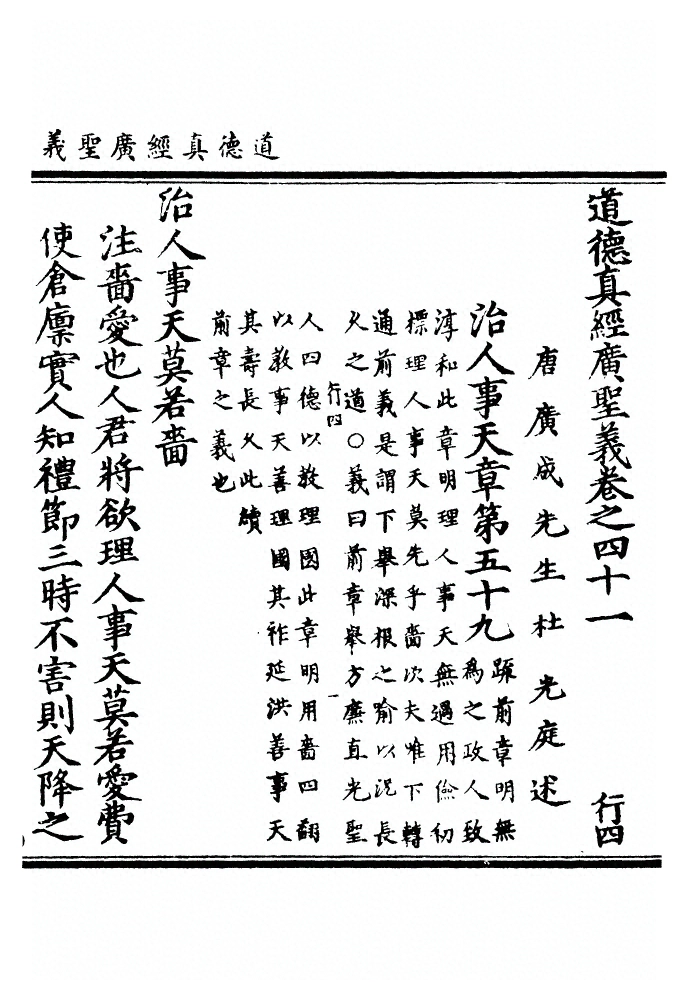 道德真經廣聖義
道德真經廣聖義卷之四十一 行四
唐廣成先生杜光庭述
治人事天章第五十九
疏前章明無
為之政人致
淳和此章明理人事天無過用儉初
標理人事天莫先乎嗇次夫唯下轉
通前義是謂下舉深根之喻以況長
久之道○義曰前章舉方廉直光聖
行四
人四德以教理國此章明用嗇四翻
以教事天善理國其祚延洪善事天
其壽長久此續
前章之義也
治人事天莫若嗇
注嗇愛也人君將欲理人事天莫若愛費
使倉廩實人知禮節三時不害則天降之